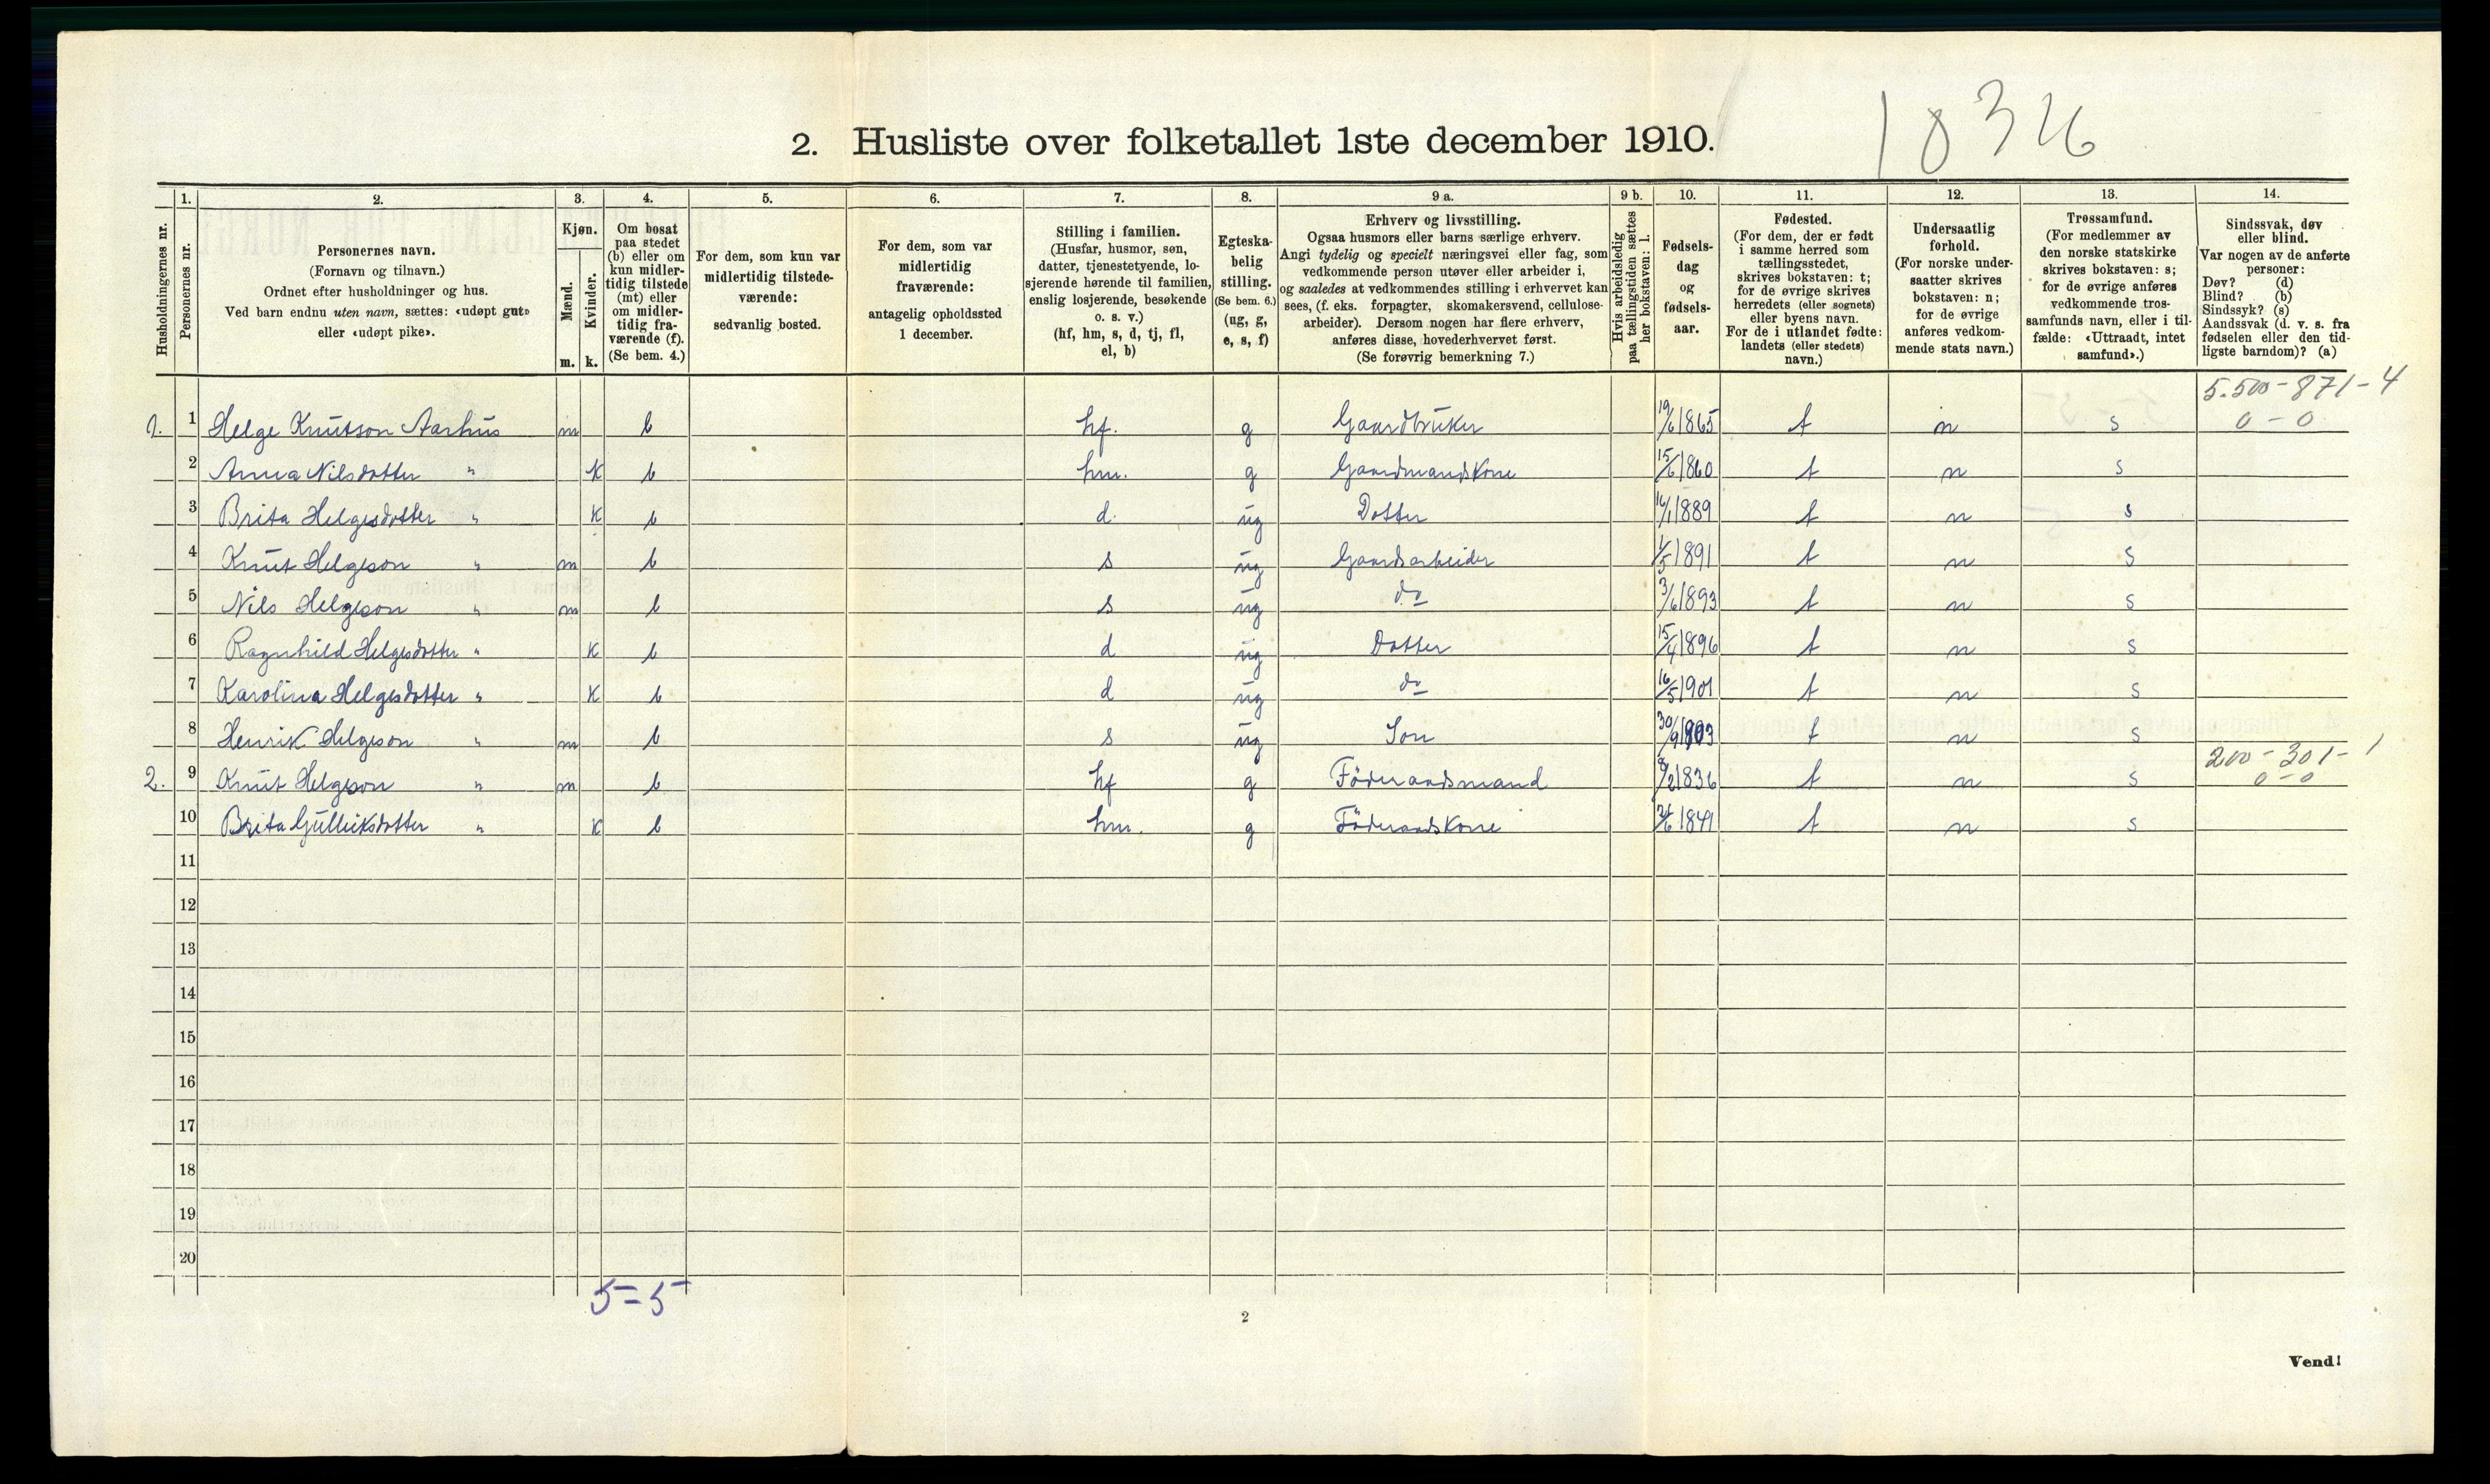 1836
2. Husliste over folketallet 1ste december 1910.
Husholdningernes nr.
1. Personernes nr.
2. Personernes navn.
(Fornavn og tilnavn.)
Ordnet efter husholdninger og hus.
Ved barn endnu uten navn, sættes: «udøpt gut»
eller «udøpt pike».
3. Kjøn.
Mænd. m.
Kvinder. k.
4. Om bosat
paa stedet
(b) eller om
kun midler-
tidig tilstede
(mt) eller
om midler-
tidig fra-
værende (f).
(Se bem. 4.)
5. For dem, som kun var
midlertidig tilstede-
værende:
sedvanlig bosted.
6. For dem, som var
midlertidig
fraværende:
antagelig opholdssted
1 december.
7. Stilling i familien.
(Husfar, husmor, søn,
datter, tjenestetyende, lo-
sjerende hørende til familien,
enslig losjerende, besøkende
o. s. v.)
(hf, hm, s, d, tj, fl,
el, b)
8. Egteska-
belig
stilling.
(Se bem. 6.)
(ug, g,
e, s, f)
9 a. Erhverv og livsstilling.
Ogsaa husmors eller barns særlige erhverv.
Angi tydelig og specielt næringsvei eller fag, som
vedkommende person utøver eller arbeider i,
og saaledes at vedkommendes stilling i erhvervet kan
sees, (f. eks. forpagter, skomakersvend, cellulose-
arbeider). Dersom nogen har flere erhverv,
anføres disse, hovederhvervet først.
(Se forøvrig bemerkning 7.)
9 b. Hvis arbeidsledig
paa tællingstiden sættes
her bokstaven: l.
10. Fødsels-
dag
og
fødsels-
aar.
11. Fødested.
(For dem, der er født
i samme herred som
tællingsstedet,
skrives bokstaven: t;
for de øvrige skrives
herredets (eller sognets)
eller byens navn.
For de i utlandet fødte:
landets (eller stedets)
navn.)
12. Undersaatlig
forhold.
(For norske under-
saatter skrives
bokstaven: n;
for de øvrige
anføres vedkom-
mende stats navn.)
13. Trossamfund.
(For medlemmer av
den norske statskirke
skrives bokstaven: s;
for de øvrige anføres
vedkommende tros-
samfunds navn, eller i til-
fælde: «Uttraadt, intet
samfund».)
14. Sindssvak, døv
eller blind.
Var nogen av de anførte
personer:
Døv? (d)
Blind? (b)
Sindssyk? (s)
Aandssvak (d. v. s. fra
fødselen eller den tid-
ligste barndom)? (a)
5.500-871-4
1. 1 Helge Knutson Aarhus m b hf. g Gaardbruker 19/6 1865 t n s 0-0
2 Anna Nilsdotter " k b hm. g Gaardmandskone 15/6 1860 t n s
3 Brita Helgesdotter " k b d. ug Dotter 16/1 1889 t n s
4 Knut Helgeson " m b s ug Gaardsarbeider 1/5 1891 t n s
5 Nils Helgeson " m b s ug do 3/6 1893 t n s
6 Ragnhild Helgesdotter " k b d ug Dotter 15/4 1896 t n s
7 Karolina Helgesdotter " k b d ug do 16/5 1901 t n s
8 Henrik Helgeson " m b s ug Son 30/9 1903 t n s
200-301-1
2. 9 Knut Helgeson " m b hf g Föderaadsmand 8/2 1836 t n s 0-0
10 Brita Gulleiksdotter " k b hm. g Föderaadskone 1841 t n s
11
12
13
14
15
16
17
18
19
20
5=5
2
Vend!